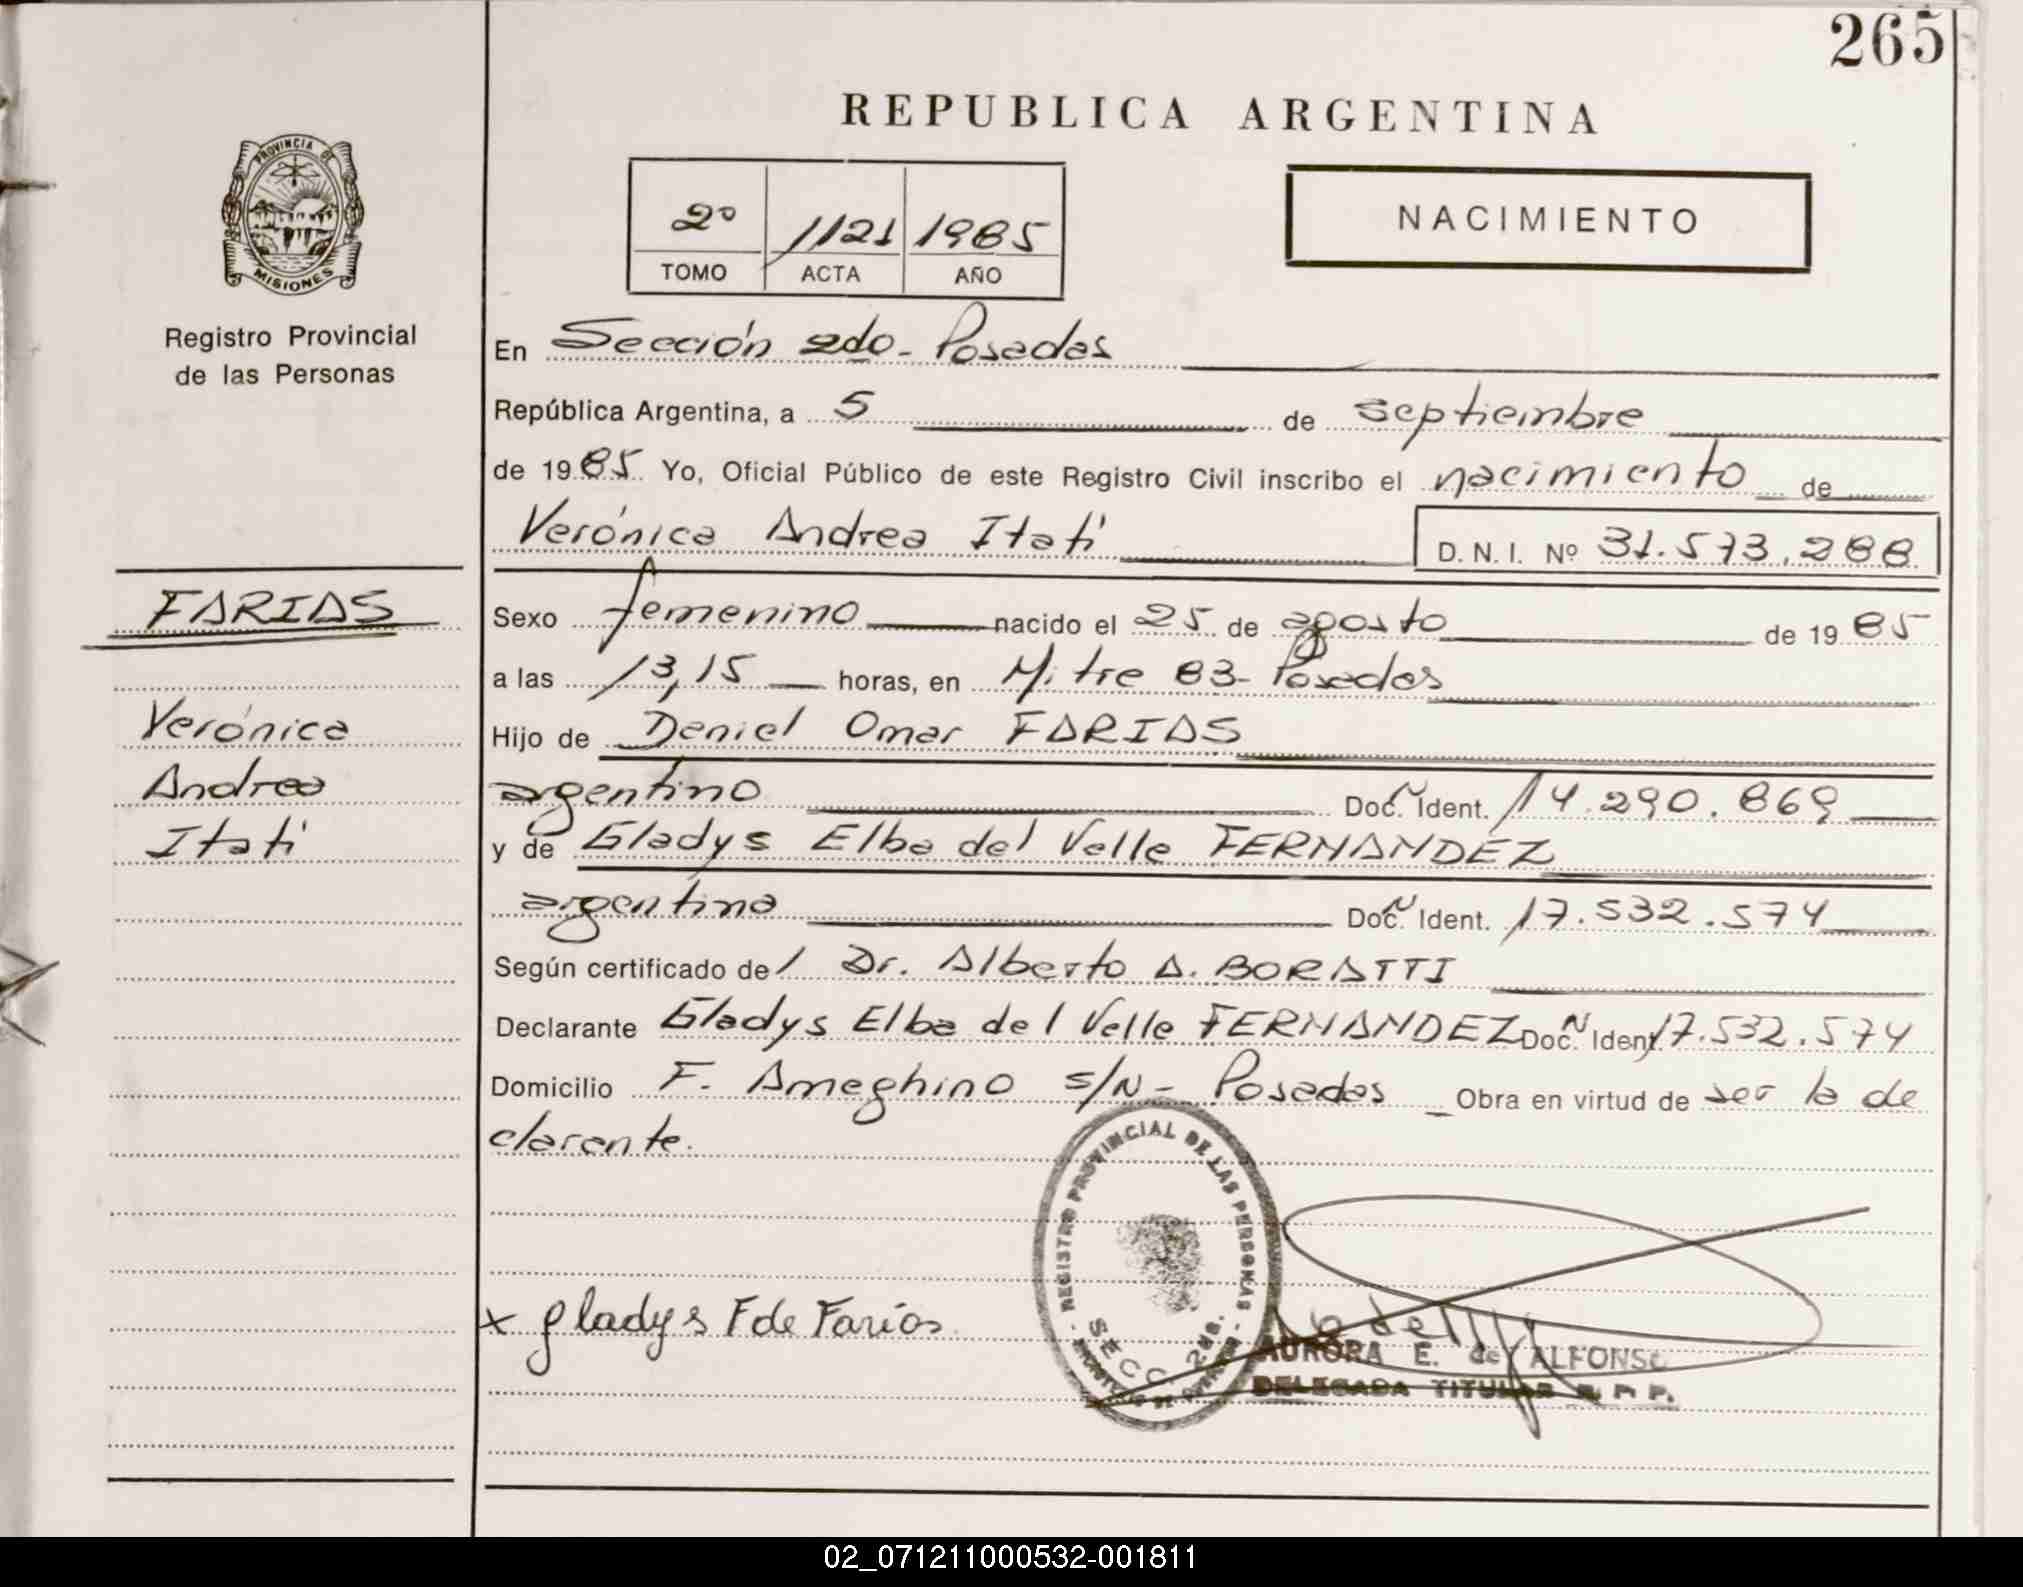 265
REPUBLICA ARGENTINA
PROVINCIA DE
MISIONES
Registro Provincial
de las Personas
2º 1121 1985
TOMO ACTA AÑO
NACIMIENTO
En Sección 2do - Posadas
República Argentina, a 5 de septiembre
de 1985. Yo, Oficial Público de este Registro Civil inscribo el nacimiento de
Verónica Andrea Itatí D. N. I. Nº 31.573.288
FARIAS
Verónica
Andrea
Itatí
Sexo femenino nacido el 25 de agosto de 1985
a las 13,15 horas, en Mitre 83 - Posadas
Hijo de Daniel Omar FARIAS
argentino Doc. N Ident. 14.290.869
y de Gladys Elba del Valle FERNANDEZ
argentina Doc. N Ident. 17.532.574
Según certificado del Dr. Alberto A. BORATTI
Declarante Gladys Elba del Valle FERNANDEZ Doc. N Ident. 17.532.574
Domicilio F. Ameghino s/N - Posadas Obra en virtud de ser la de
clarante.
REGISTRO PROVINCIAL DE LAS PERSONAS
SECC. 2da.
x Gladys F de Farías
AURORA E. de ALFONSO
DELEGADA TITULAR R. P. P.
02_071211000532-001811